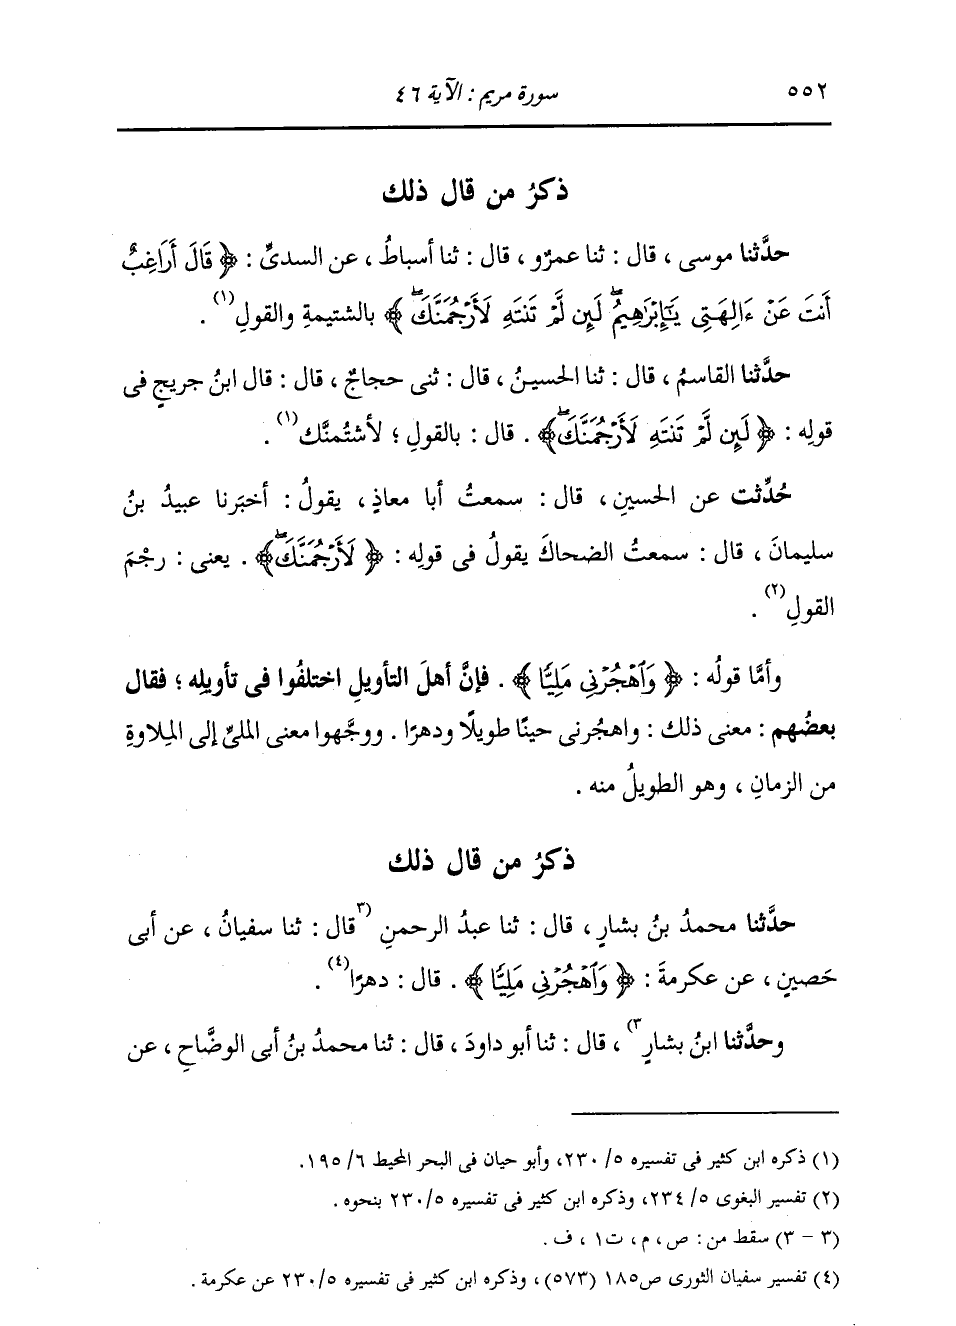 ٥٥٢
سورة مريم : الآية ٤٦
ذكرُ من قال ذلك
حدَّثنا موسى ، قال : ثنا عمرٌو ، قال : ثنا أسباطُ ، عن السدىِّ : ﴿ قَالَ أَرَاغِبٌ
أَنتَ عَنْ ءَالِهَتِى يَٰٓإِبْرَٰهِيمُۖ لَئِن لَّمْ تَنتَهِ لَأَرْجُمَنَّكَۖ ﴾ بالشتيمةِ والقولِ (١) .
حدَّثنا القاسمُ ، قال : ثنا الحسينُ ، قال : ثنى حجاجٌ ، قال : قال ابنُ جريجٍ فى
قولِه : ﴿ لَئِن لَّمْ تَنتَهِ لَأَرْجُمَنَّكَۖ ﴾ . قال : بالقولِ ؛ لأشتُمنَّك (١) .
حُدِّثت عن الحسينِ ، قال : سمعتُ أبا معاذٍ ، يقولُ : أخبَرنا عبيدُ بنُ
سليمانَ ، قال : سمعتُ الضحاكَ يقولُ فى قولِه : ﴿ لَأَرْجُمَنَّكَۖ ﴾ . يعنى : رجْمَ
القولِ (٢) .
وأمَّا قولُه : ﴿ وَٱهْجُرْنِى مَلِيًّا ﴾ . فإنَّ أهلَ التأويلِ اختلَفُوا فى تأويلِه ؛ فقال
بعضُهم : معنى ذلك : واهجُرنى حينًا طويلًا ودهرًا . ووجَّهوا معنى الملىِّ إلى المِلاوةِ
من الزمانِ ، وهو الطويلُ منه .
ذكرُ من قال ذلك
حدَّثنا محمدُ بنُ بشارٍ ، قال : ثنا عبدُ الرحمنِ (٣ قال : ثنا سفيانُ ، عن أبى
حَصينٍ ، عن عكرمةَ : ﴿ وَٱهْجُرْنِى مَلِيًّا ﴾ . قال : دهرًا (٤) .
وحدَّثنا ابنُ بشارٍ ٣) ، قال : ثنا أبو داودَ ، قال : ثنا محمدُ بنُ أبى الوضَّاحِ ، عن
(١) ذكره ابن كثير فى تفسيره ٥/ ٢٣٠، وأبو حيان فى البحر المحيط ٦/ ١٩٥.
(٢) تفسير البغوى ٥/ ٢٣٤، وذكره ابن كثير فى تفسيره ٥/ ٢٣٠ بنحوه .
(٣ - ٣) سقط من : ص ، م ، ت١ ، ف .
(٤) تفسير سفيان الثورى ص١٨٥ (٥٧٣) ، وذكره ابن كثير فى تفسيره ٥/ ٢٣٠ عن عكرمة .